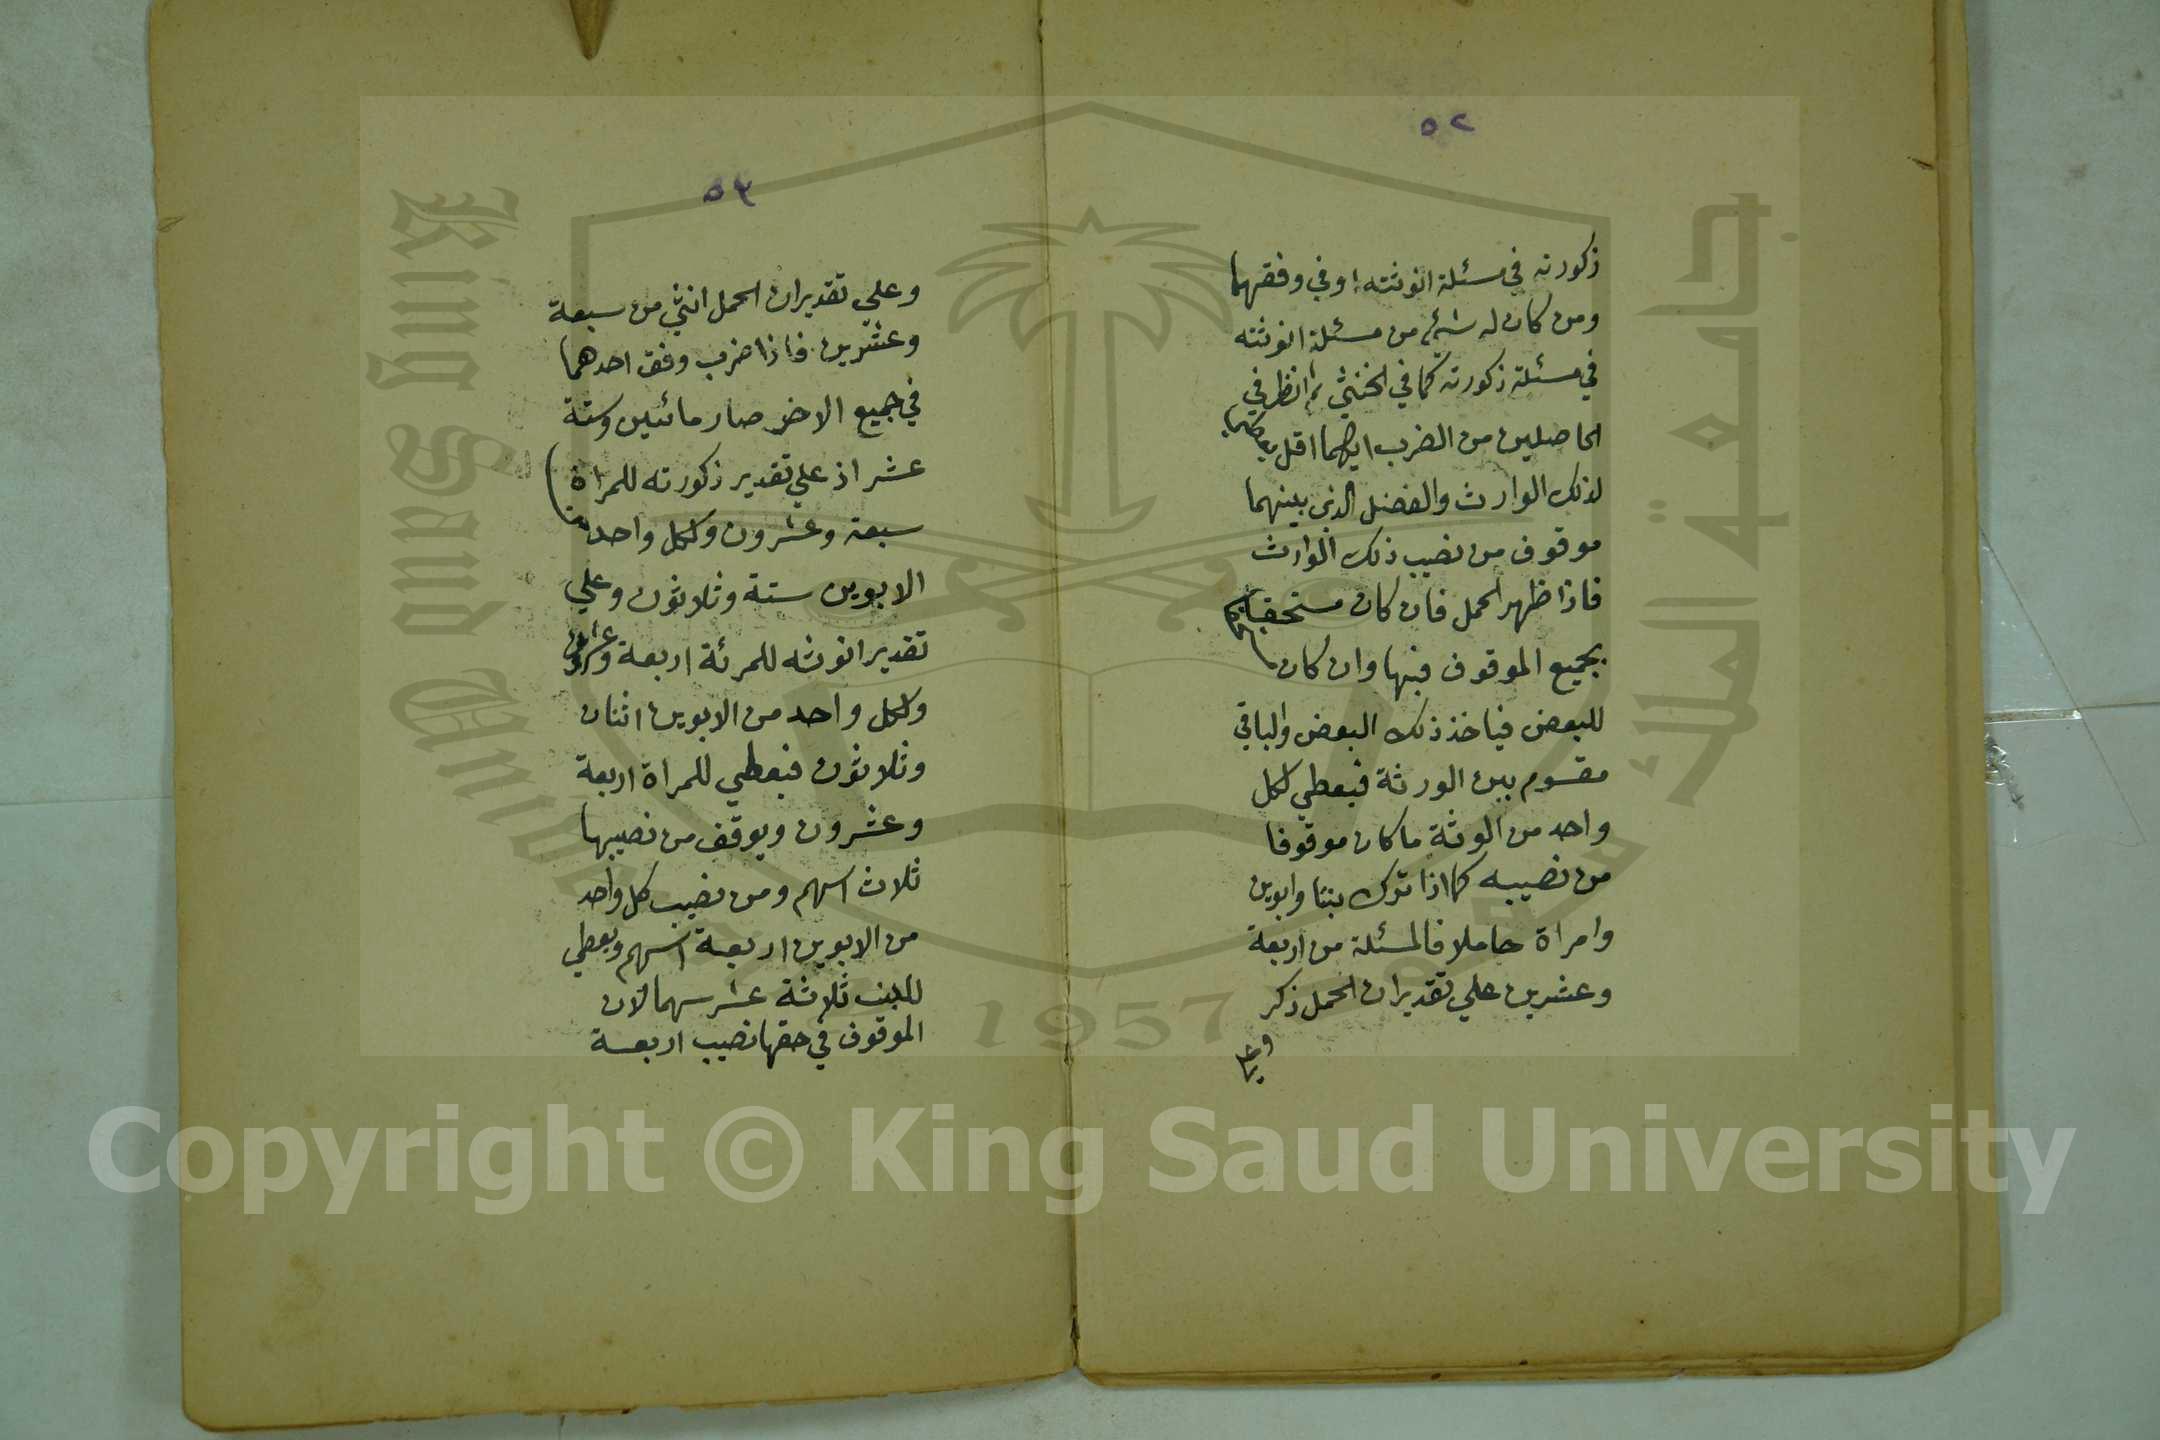 ٥٢
ذكورته في مسئلة انوثته او في وفقهما
ومن كان له شئ من مسئلة انوثته
في مسئلة ذكورته كما في الخنثي ثم انظر في
الحاصلين من الضرب ايهما اقل يعطيها
لذلك الوارث والفضل الذي بينهما
موقوف من نصيب ذلك الوارث
فاذا ظهر الحمل فان كان مستحقا
بجميع الموقوف فبها وان كان
للبعض فياخذ ذلك البعض والباقي
مقسوم بين الورثة فيعطي لكل
واحد من الوثة ما كان موقوفا
من نصيبه كما اذا ترك بنتا وابوين
وامراة حاملا فالمسئلة من اربعة
وعشرين علي تقدير ان الحمل ذكر
وعلي
٥٣
وعلي تقدير ان الحمل انثي من سبعة
وعشرين فاذا ضرب وفق احدهما
في جميع الاخر صار مائتين وستة
عشر اذ علي تقدير ذكورته للمراة
سبعة وعشرون ولكل واحد من
الابوين ستة وثلاثون وعلي
تقدير انوثته للمرئة اربعة وعشرون
ولكل واحد من الابوين اثنان
وثلاثون فيعطي للمراة اربعة
وعشرون ويوقف من نصيبها
ثلاث اسهم ومن نصيب كل واحد
من الابوين اربعة اسهم ويعطي
للبنت ثلاثة عشر سهما لان
الموقوف في حقها نصيب اربعة
جامعة الملك سعود
King Saud University
1957
Copyright © King Saud University